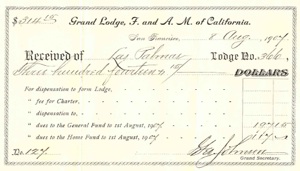 $314 15 Grand Lodge, F. and A. M. of California.
San Francisco 8 Aug. 1907
Received of Las Palmas Lodge No. 366,
Three hundred fourteen & 15/ DOLLARS
For dispensation to form Lodge,
" fee for Charter,
" dispensation to
" dues to the General Fund to 1st August, 1907
" dues to the Home Fund to 1st August, 1907
No. 127
Grand Secretary.